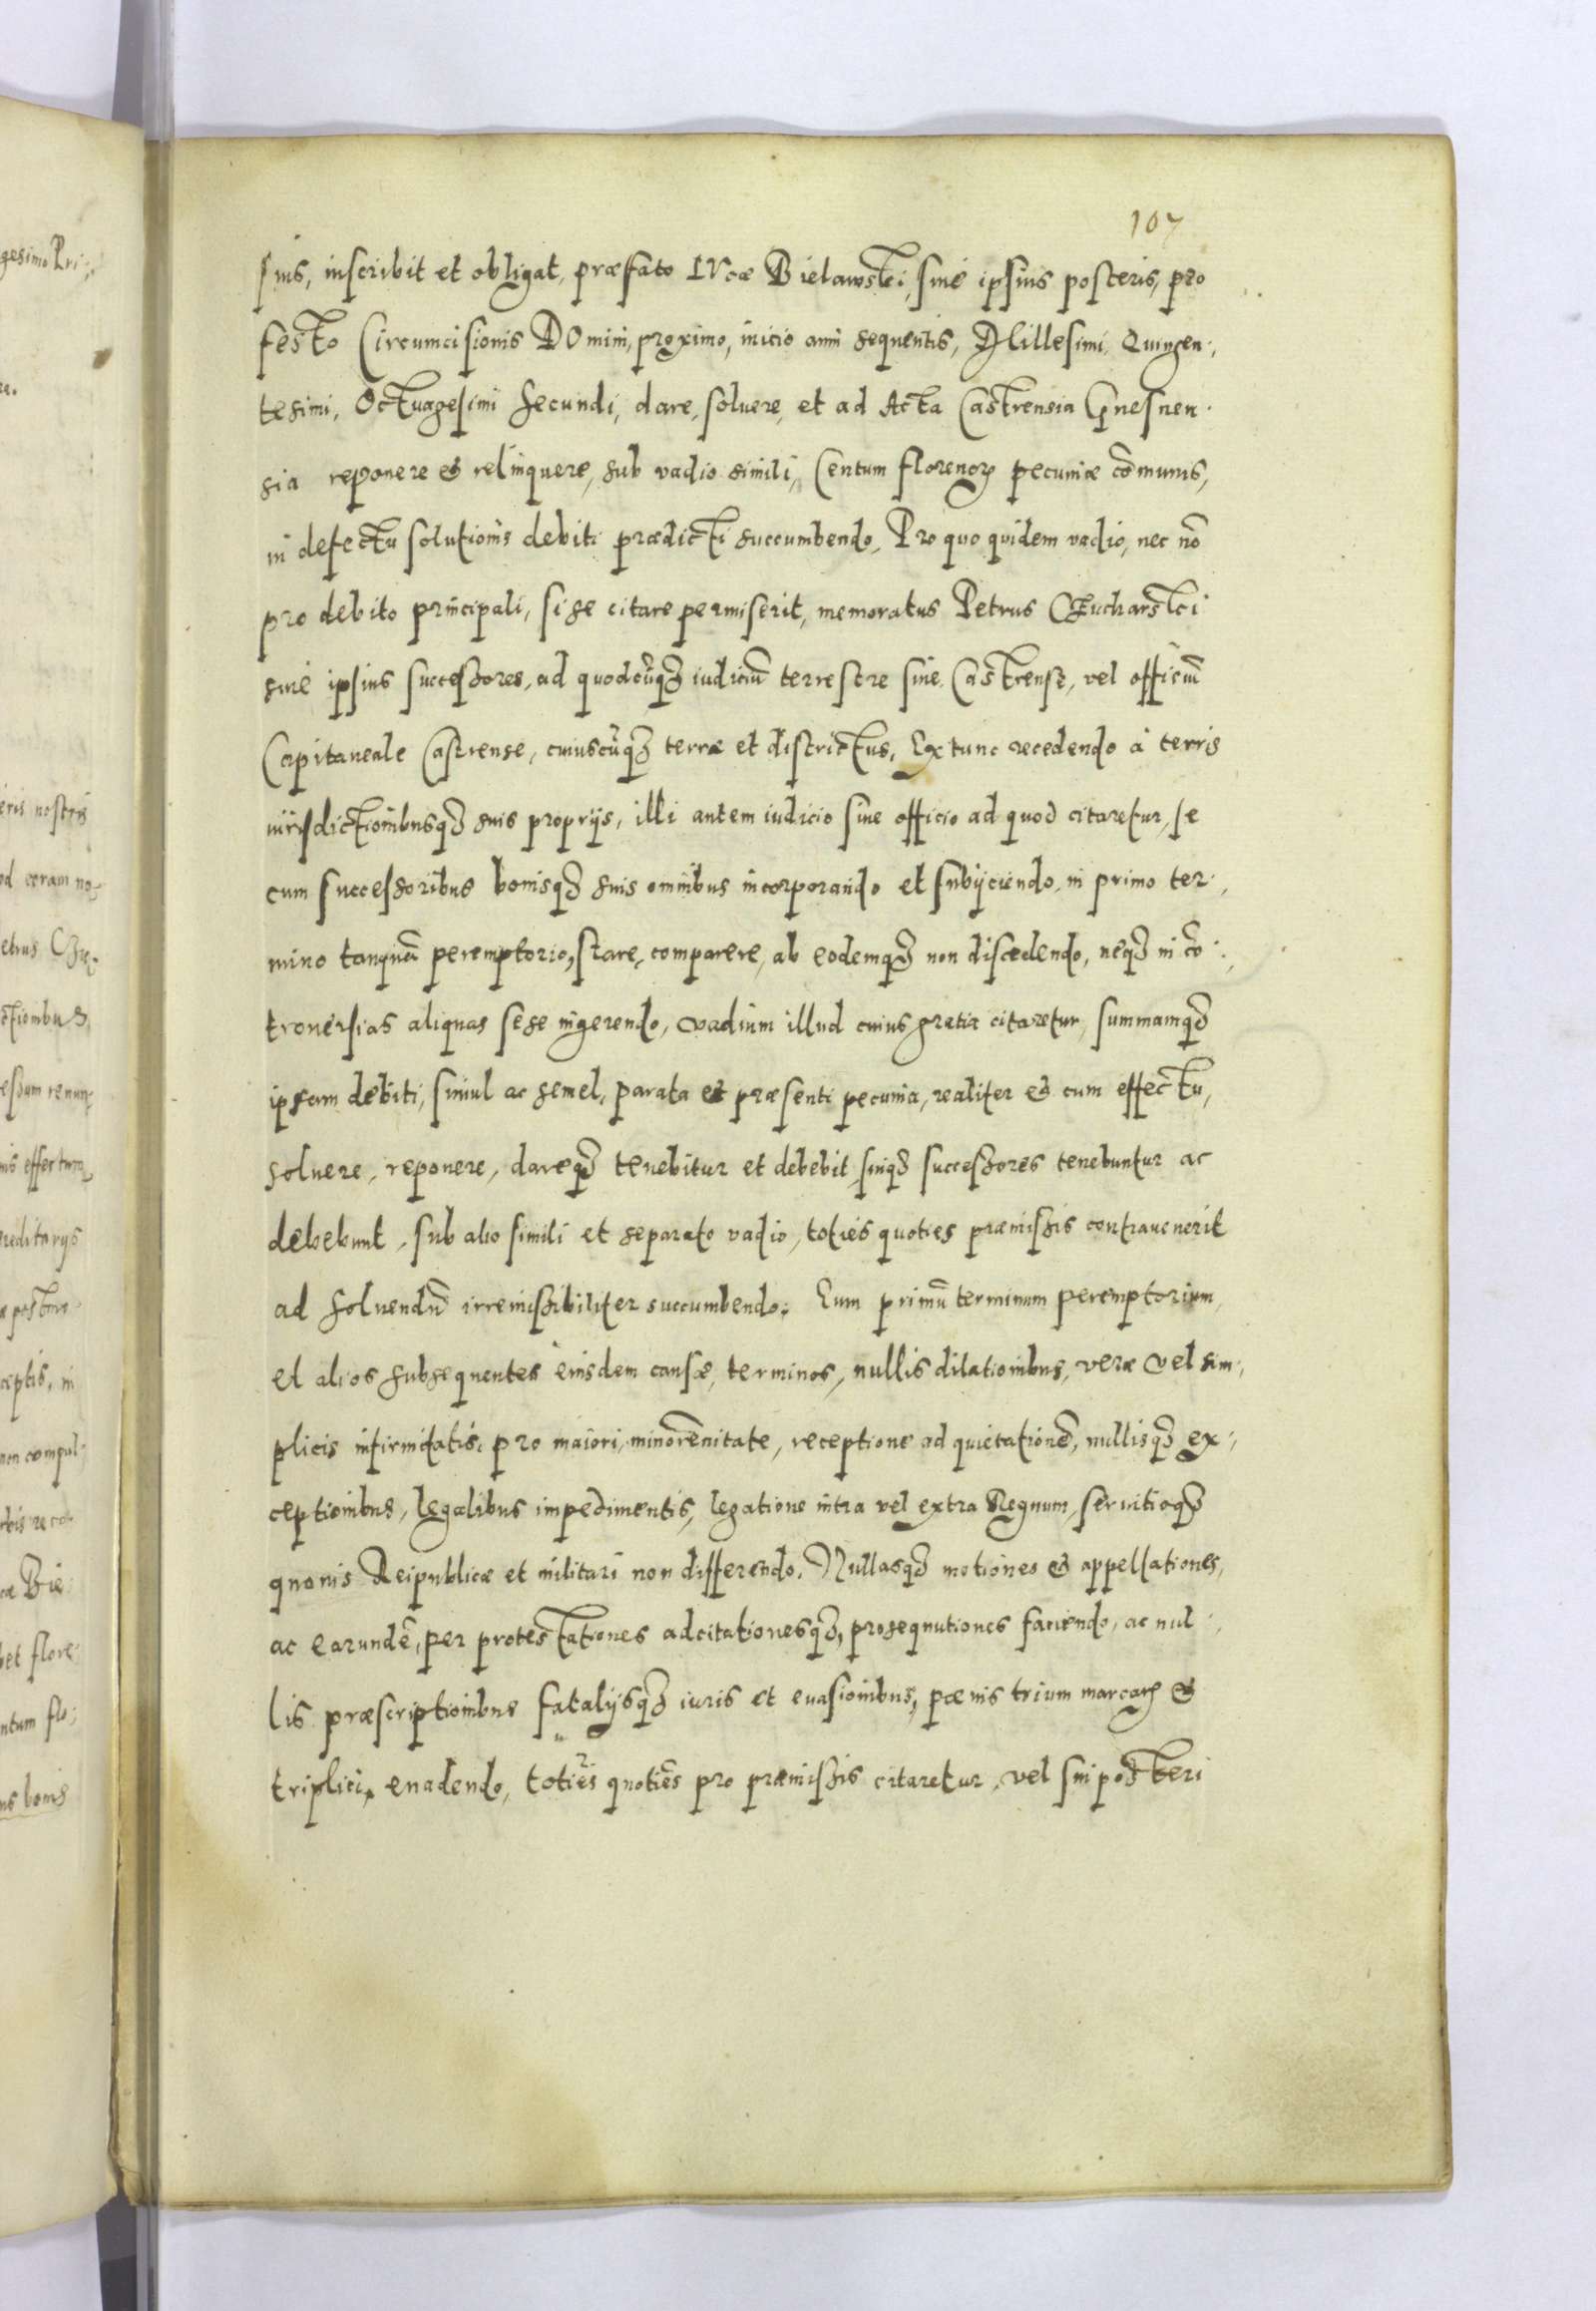 107
suis, inscribit et obligat, præfato LVcæ Bielawski, siue ipsius posteris, pro
festo Circumcisionis DOmini, proximo, inicio anni sequentis, Millesimi, Quingen-
tesimi, Octuagesimi secundi, dare, soluere, et ad Acta Castrensia Gnesnen-
sia reponere et relinquere, sub vadio simili, Centum florenoꝝ pecuniæ cõmunis,
in defectu solutionis debiti prædicti succumbendo, Pro quo quidem vadio, nec nõ
pro debito principali, si se citare permiserit, memoratus Petrus
siue ipsius successores, ad quodcũqȝ iudiciũ terrestre siue Castrense, vel officiũ
Capitaneale Castrense, cuiuscũqȝ terræ et districtus, Ex tunc recedendo à terris
iurisdictionibusqȝ suis proprijs, illi autem iudicio siue officio ad quod citaretur, se
cum successoribus bonisqȝ suis omnibus incorporando et subijciendo, in primo ter-
mino tanquã peremptorio, stare, comparere, ab eodemqȝ non discedendo, neqȝ in cõ-
trouersias aliquas sese ingerendo, vadium illud cuius gratia citaretur, summamqȝ
ipsam debiti, simul ac semel, parata et præsenti pecunia, realiter et cum effectu,
soluere, reponere, dareqȝ tenebitur et debebit, suiqȝ successores tenebuntur ac
debebunt, sub alio simili et separato vadio, toties quoties præmissis contrauenerit
ad soluendũ irremissibiliter succumbendo. Eum primũ terminum peremptorium,
et alios subsequentes eiusdem causæ, terminos, nullis dilationibus, veræ vel sim-
plicis infirmitatis, pro maiori, minorennitate, receptione ad quietationẽ, nullisqȝ ex-
ceptionibus, legalibus impedimentis, legatione intra vel extra Regnum, seruitioqȝ
quouis Reipublicæ et militari non differendo. Nullasqȝ motiones et appellationes,
ac earundẽ, per protestationes adcitationesqȝ, prosequutiones faciendo, ac nul-
lis præscriptionibus fatalijsqȝ iuris et euasionibus, pœnis trium marcaꝝ et
triplici, euadendo, toties quoties pro præmissis citaretur, vel sui posteri